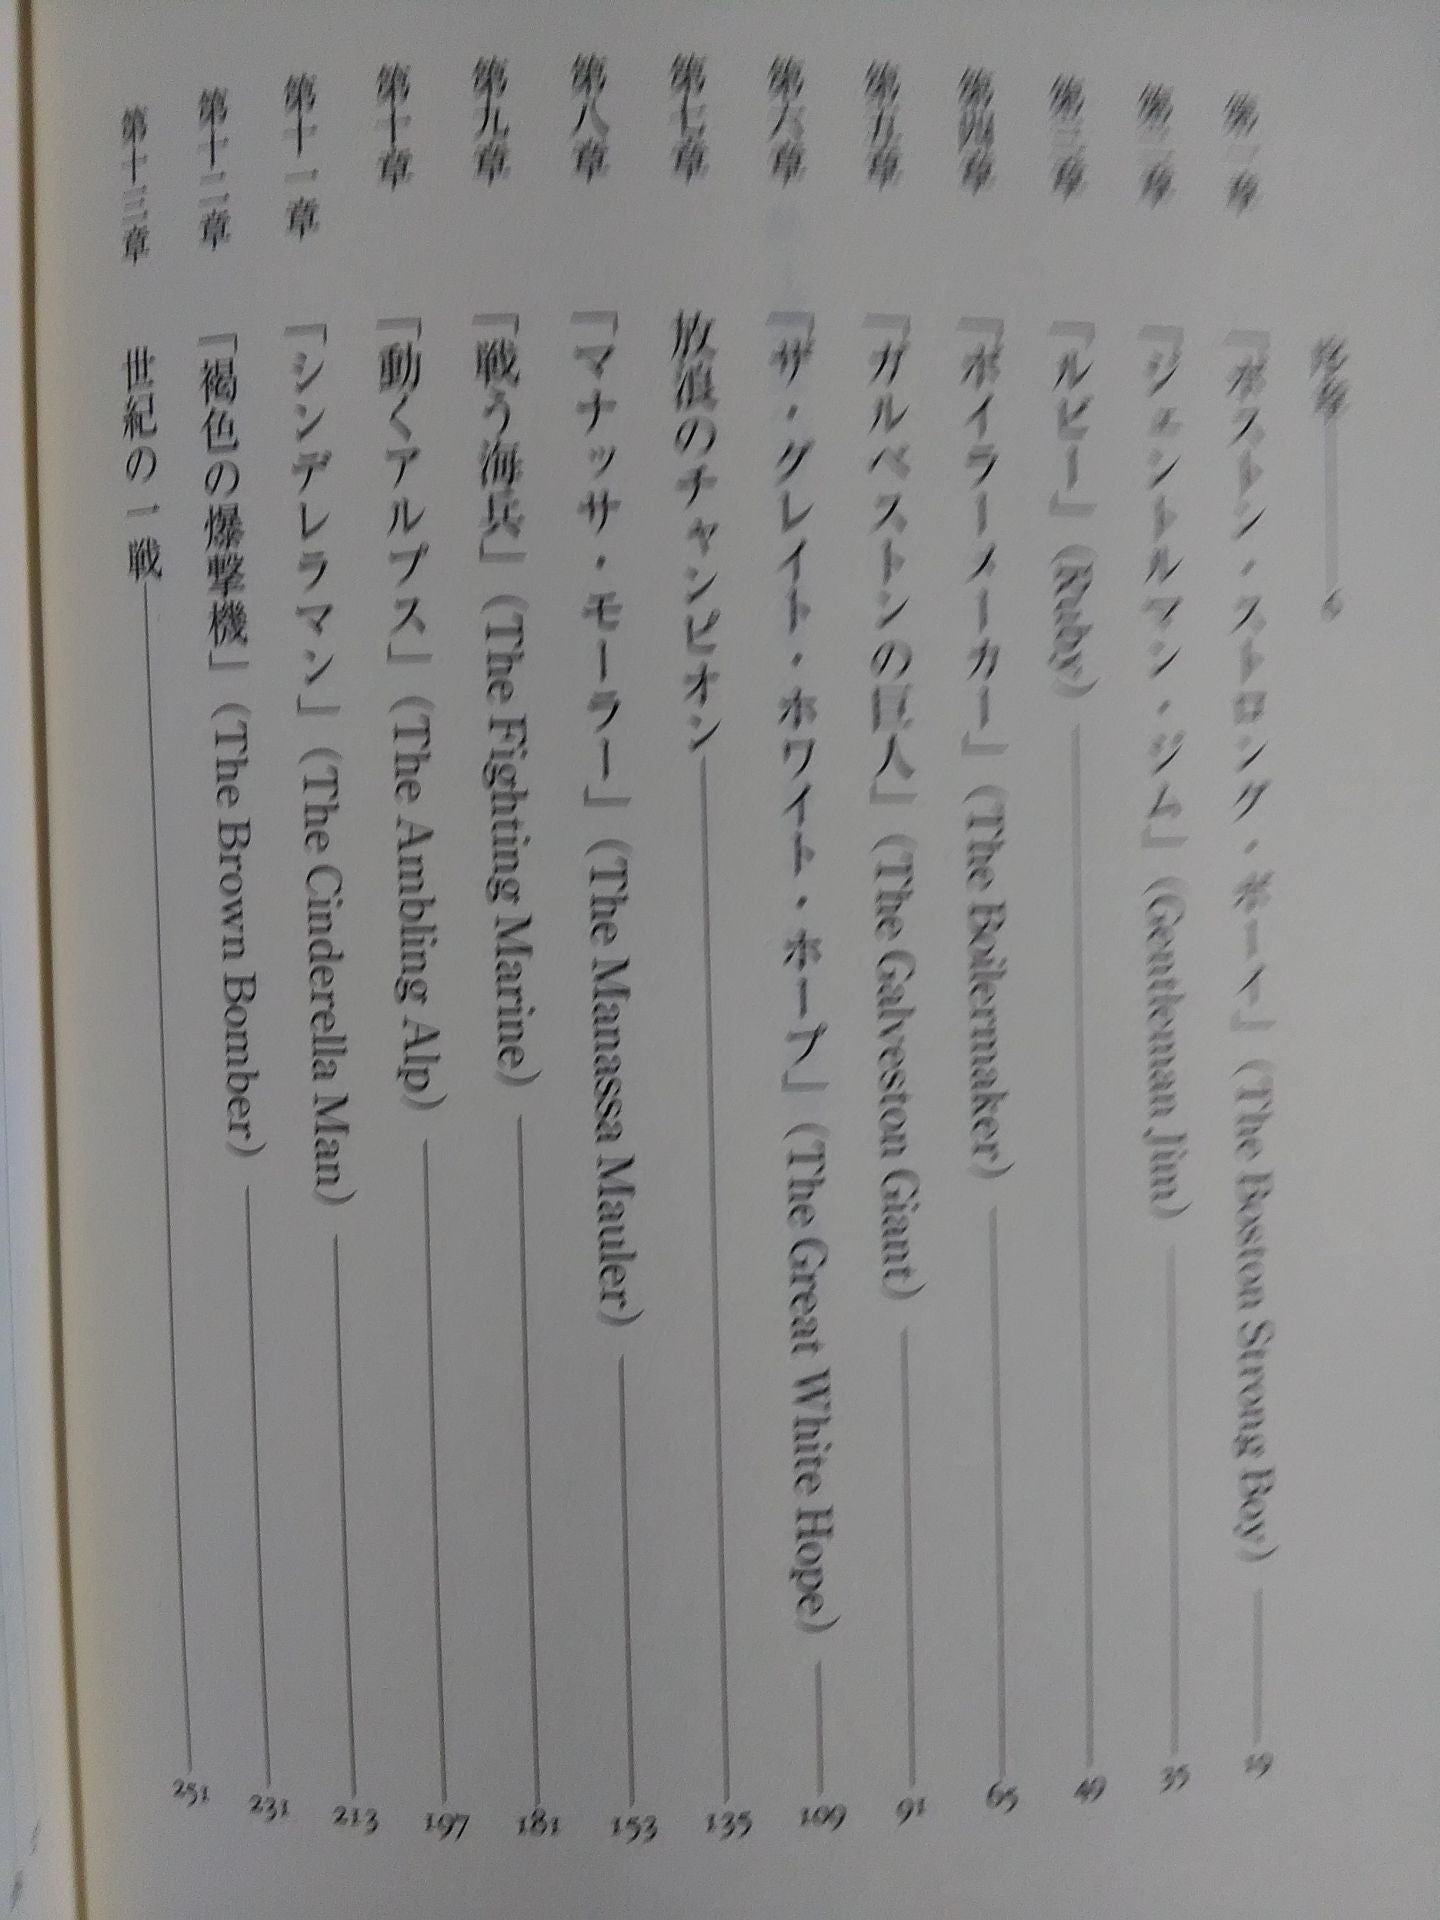 序章 9
第一章 『ボストン・ストロング・ボーイ』(The Boston Strong Boy) 19
第二章 『ジェントルマン・ジム』(Gentleman Jim) 35
第三章 『ルビー』(Ruby) 49
第四章 『ボイラーメーカー』(The Boilermaker) 65
第五章 『ガルベストンの巨人』(The Galveston Giant) 91
第六章 『ザ・グレイト・ホワイト・ホープ』(The Great White Hope) 109
第七章 放浪のチャンピオン 135
第八章 『マナッサ・モーラー』(The Manassa Mauler) 153
第九章 『戦う海兵』(The Fighting Marine) 181
第十章 『動くアルプス』(The Ambling Alp) 197
第十一章 『シンデレラマン』(The Cinderella Man) 213
第十二章 『褐色の爆撃機』(The Brown Bomber) 231
第十三章 世紀の一戦 251